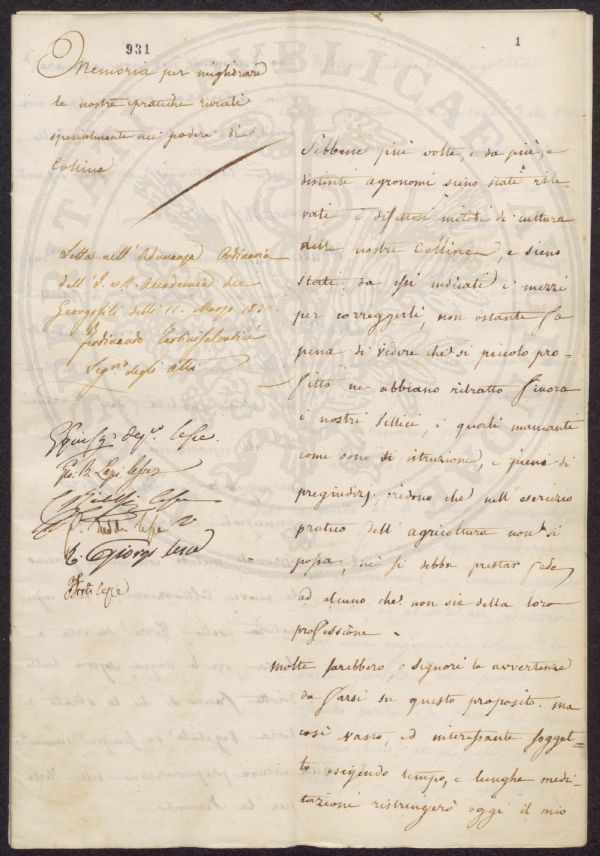 931
1
Memoria per migliorare
le nostre pratiche rurali
specialmente nei poderi di
Collina
Letta nell'Adunanza Ordinaria
dell'I. e R. Accademia dei
Georgofili delli 11. Marzo
Ferdinando Tartini Salvatici
Segr.o degli Atti
G. Giorgi
Sebbene più volte, e da più, e
distinti agronomi sieno stati rile-
vati i difettosi metodi di cultura
delle nostre Colline, e sieno
stati da essi indicati i mezzi
per correggerli, non ostante fa
pena di vedere che si piccolo pro-
fitto ne abbiano ritratto finora
i nostri Villici, i quali mancanti
come sono di istruzione, e pieni di
pregiudizj, credono che nell'esercizio
pratico dell'agricoltura non si
possa, nè si debba prestar fede
ad alcuno che non sie della loro
professione.
Molte sarebbero, o signori le avvertenze
da farsi su questo proposito. ma
così vasto, ed interessante sogget-
to esigendo tempo, e lunghe medi-
tazioni ristringerò oggi il mio